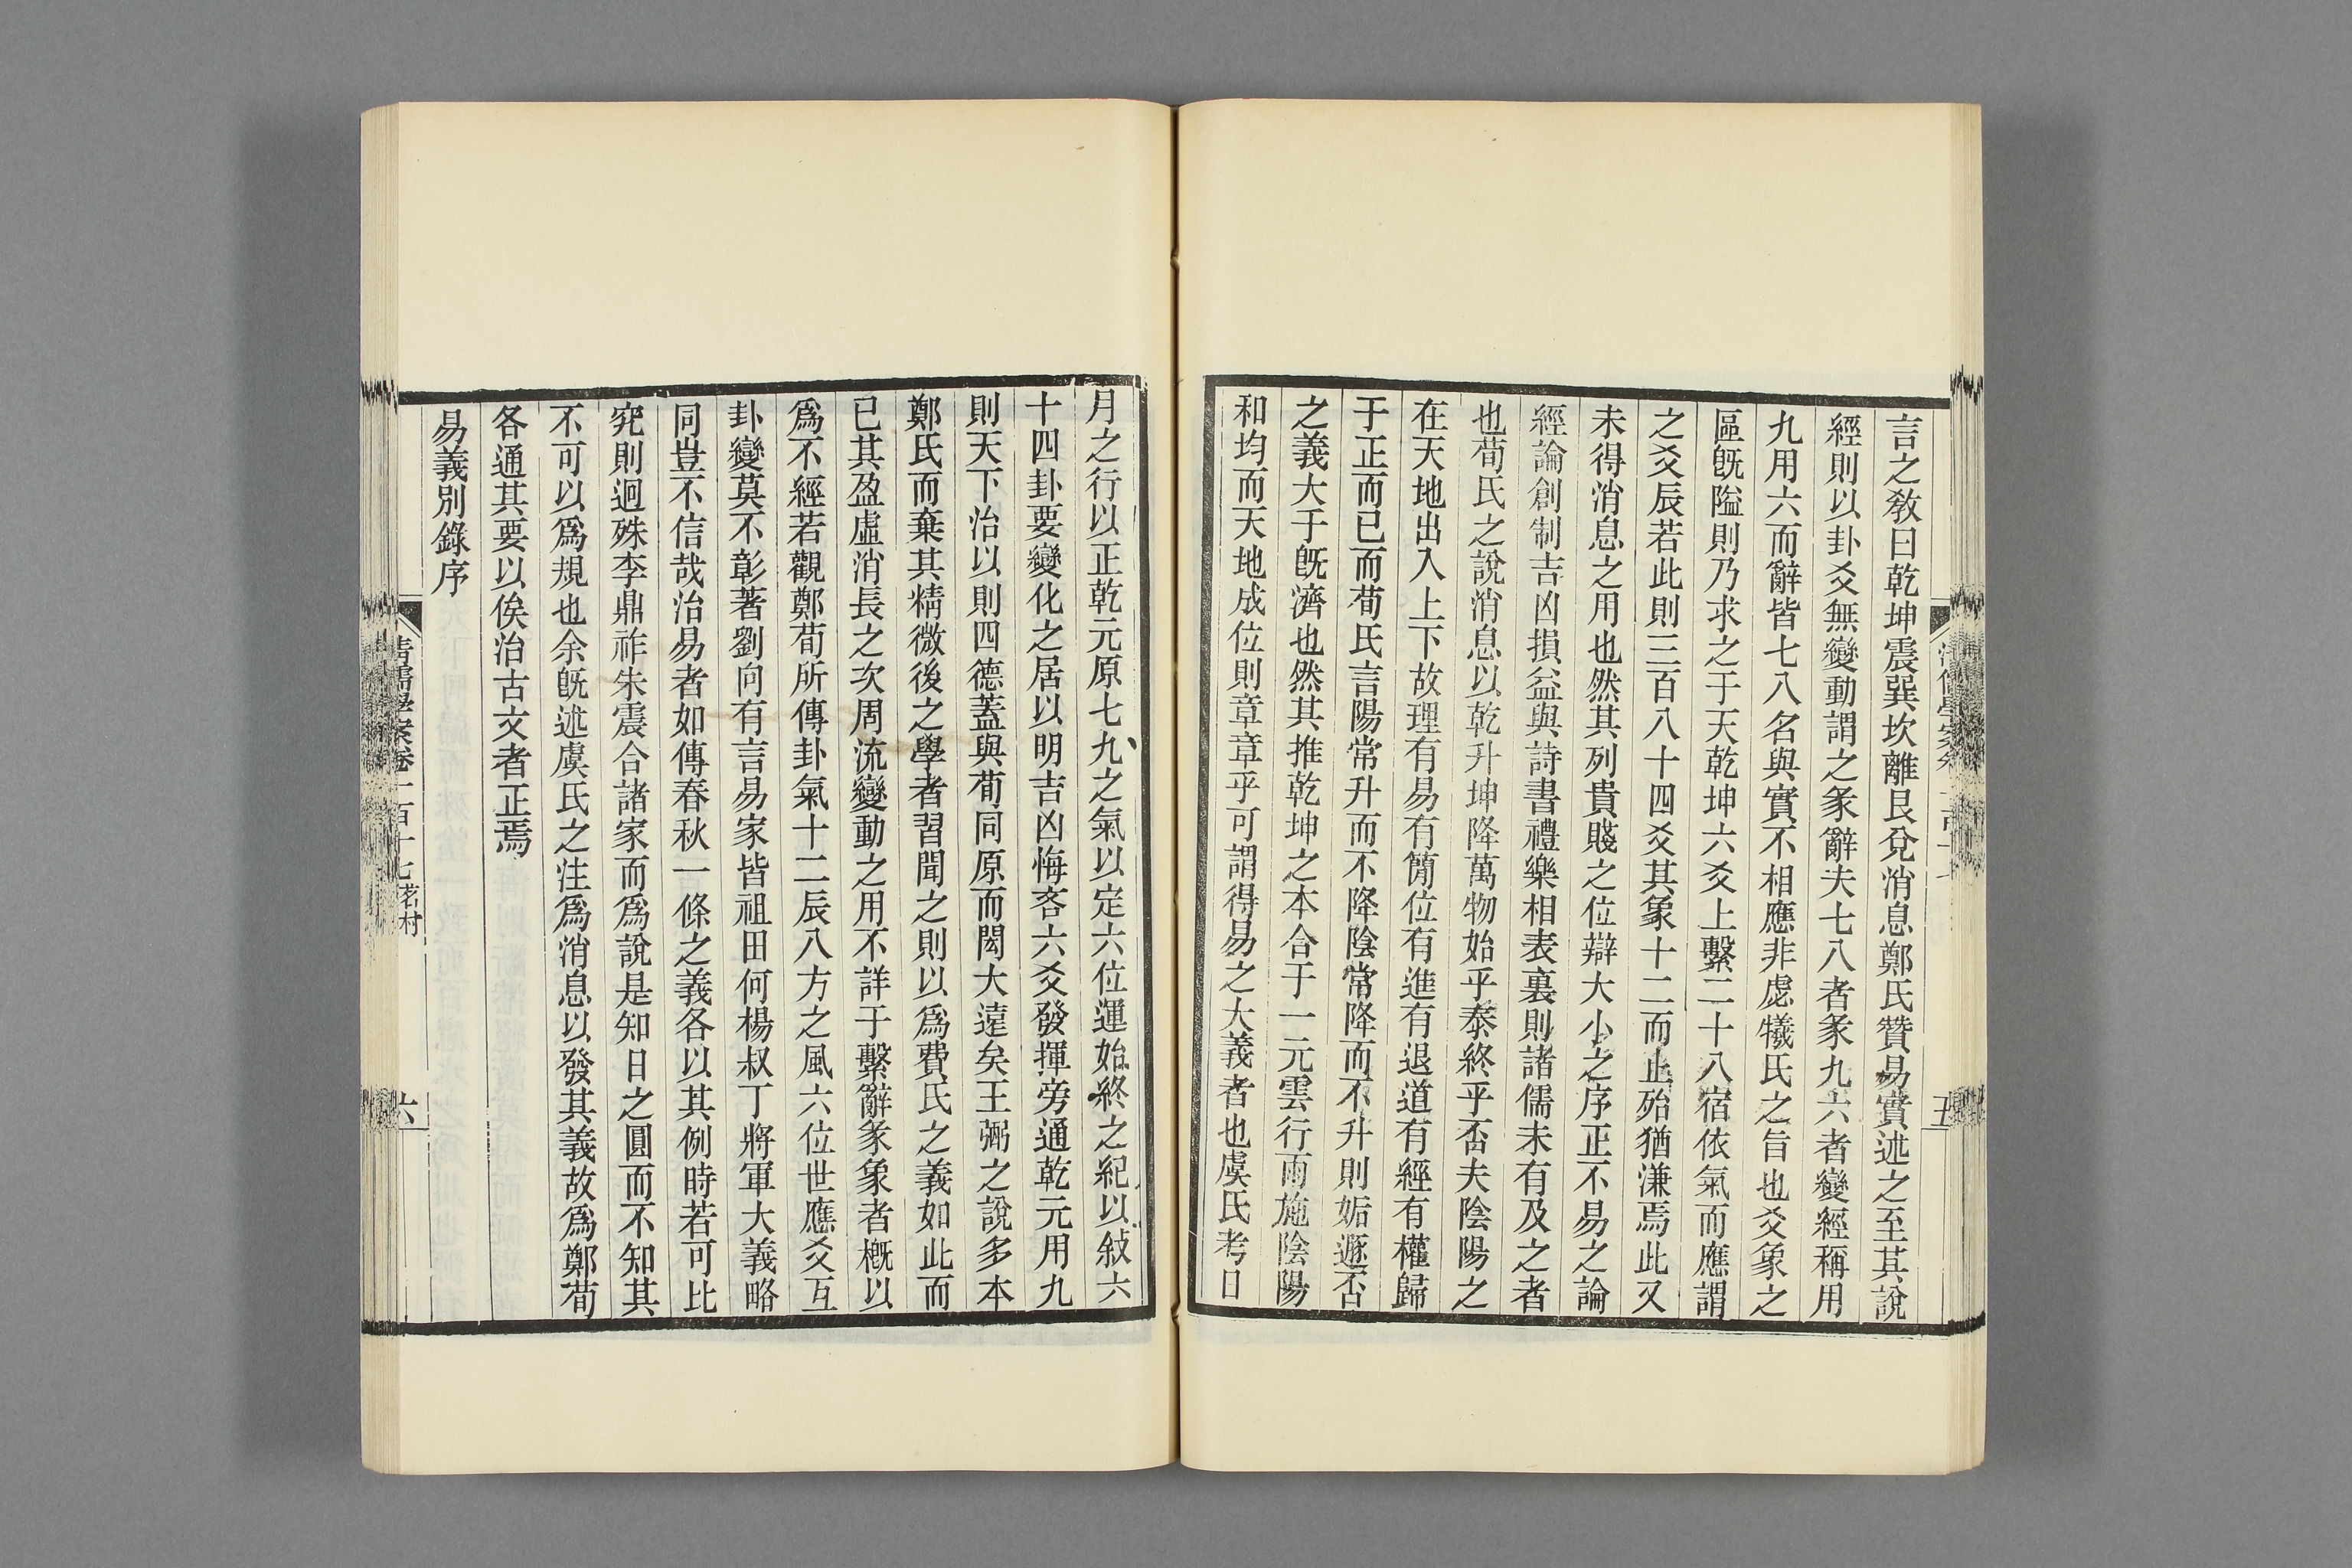 言之敎曰乾坤震巽坎離艮兌消息鄭氏贊易實述之至其說
經則以卦爻無變動謂之彖辭夫七八者彖九六者變經稱用
九用六而辭皆七八名與實不相應非虙犧氏之旨也爻象之
區旣隘則乃求之于天乾坤六爻上繫二十八宿依氣而應謂
之爻辰若此則三百八十四爻其象十二而止殆猶溓焉此又
未得消息之用也然其列貴賤之位辯大小之序正不易之論
經論創制吉凶損益與詩書禮樂相表裏則諸儒未有及之者
也荀氏之說消息以乾升坤降萬物始乎泰終乎否夫陰陽之
在天地出入上下故理有易有簡位有進有退道有經有權歸
于正而已而荀氏言陽常升而不降陰常降而不升則姤遯否
之義大于旣濟也然其推乾坤之本合于一元雲行雨施陰陽
和均而天地成位則章章乎可謂得易之大義者也虞氏考日
五
月之行以正乾元原七九之氣以定六位運始終之紀以敍六
十四卦要變化之居以明吉凶悔吝六爻發揮旁通乾元用九
則天下治以則四德蓋與荀同原而閎大遠矣王弼之說多本
鄭氏而棄其精微後之學者習聞之則以爲費氏之義如此而
已其盈虛消長之次周流變動之用不詳于繫辭彖象者槪以
爲不經若觀鄭荀所傳卦氣十二辰八方之風六位世應爻互
卦變莫不彰著劉向有言易家皆祖田何楊叔丁將軍大義略
同豈不信哉治易者如傳春秋一條之義各以其例時若可比
究則迥殊李鼎祚朱震合諸家而爲說是知日之圓而不知其
不可以爲規也余旣述虞氏之注爲消息以發其義故爲鄭荀
各通其要以俟治古文者正焉
易義別錄序
清儒學案卷一百十七 茗村
六